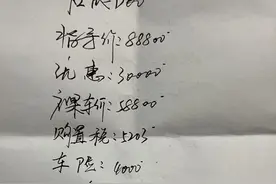 指导价:88800
优惠:30000
裸车价:58800
购置税:5203
车险:4000